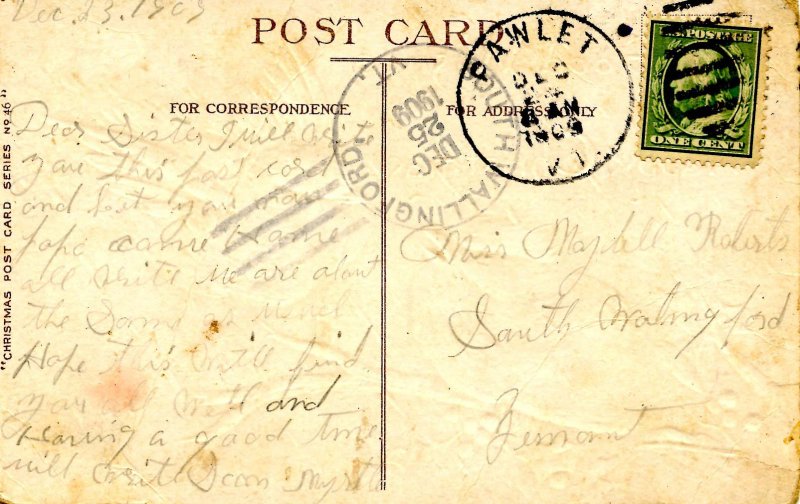 Dec. 23. 1909
POST CARD
FOR CORRESPONDENCE
FOR ADDRESS ONLY
"CHRISTMAS POST CARD SERIES No 46"
PAWLET
DEC
1909
VT.
SOUTH WALLINGFORD,
VT.
DEC
1909
U.S. POSTAGE
ONE CENT
Dear Sister I will write
you this post card
and let you
papa came Home
all write We are about
the Same as usual
Hope this will find
you all well and
Having a good time
will write Soon Myrtle
Miss Maydell Roberts
South Walingford
Vermont